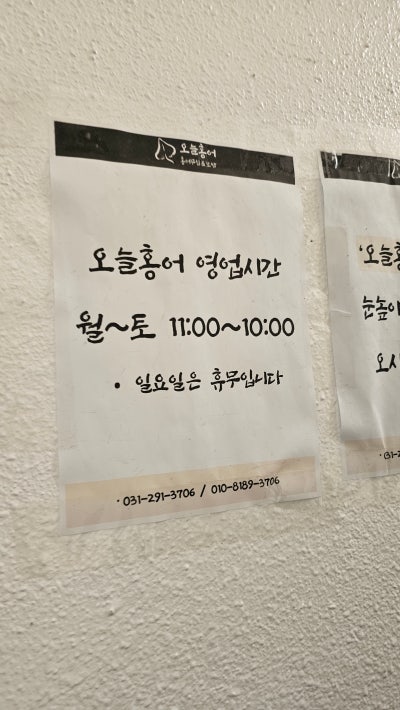 오늘홍어
오늘홍어 영업시간
월~토 11:00~10:00
• 일요일은 휴무입니다
· 031-291-3706 / 010-8189-3706
'오늘홍
눈높이
오시